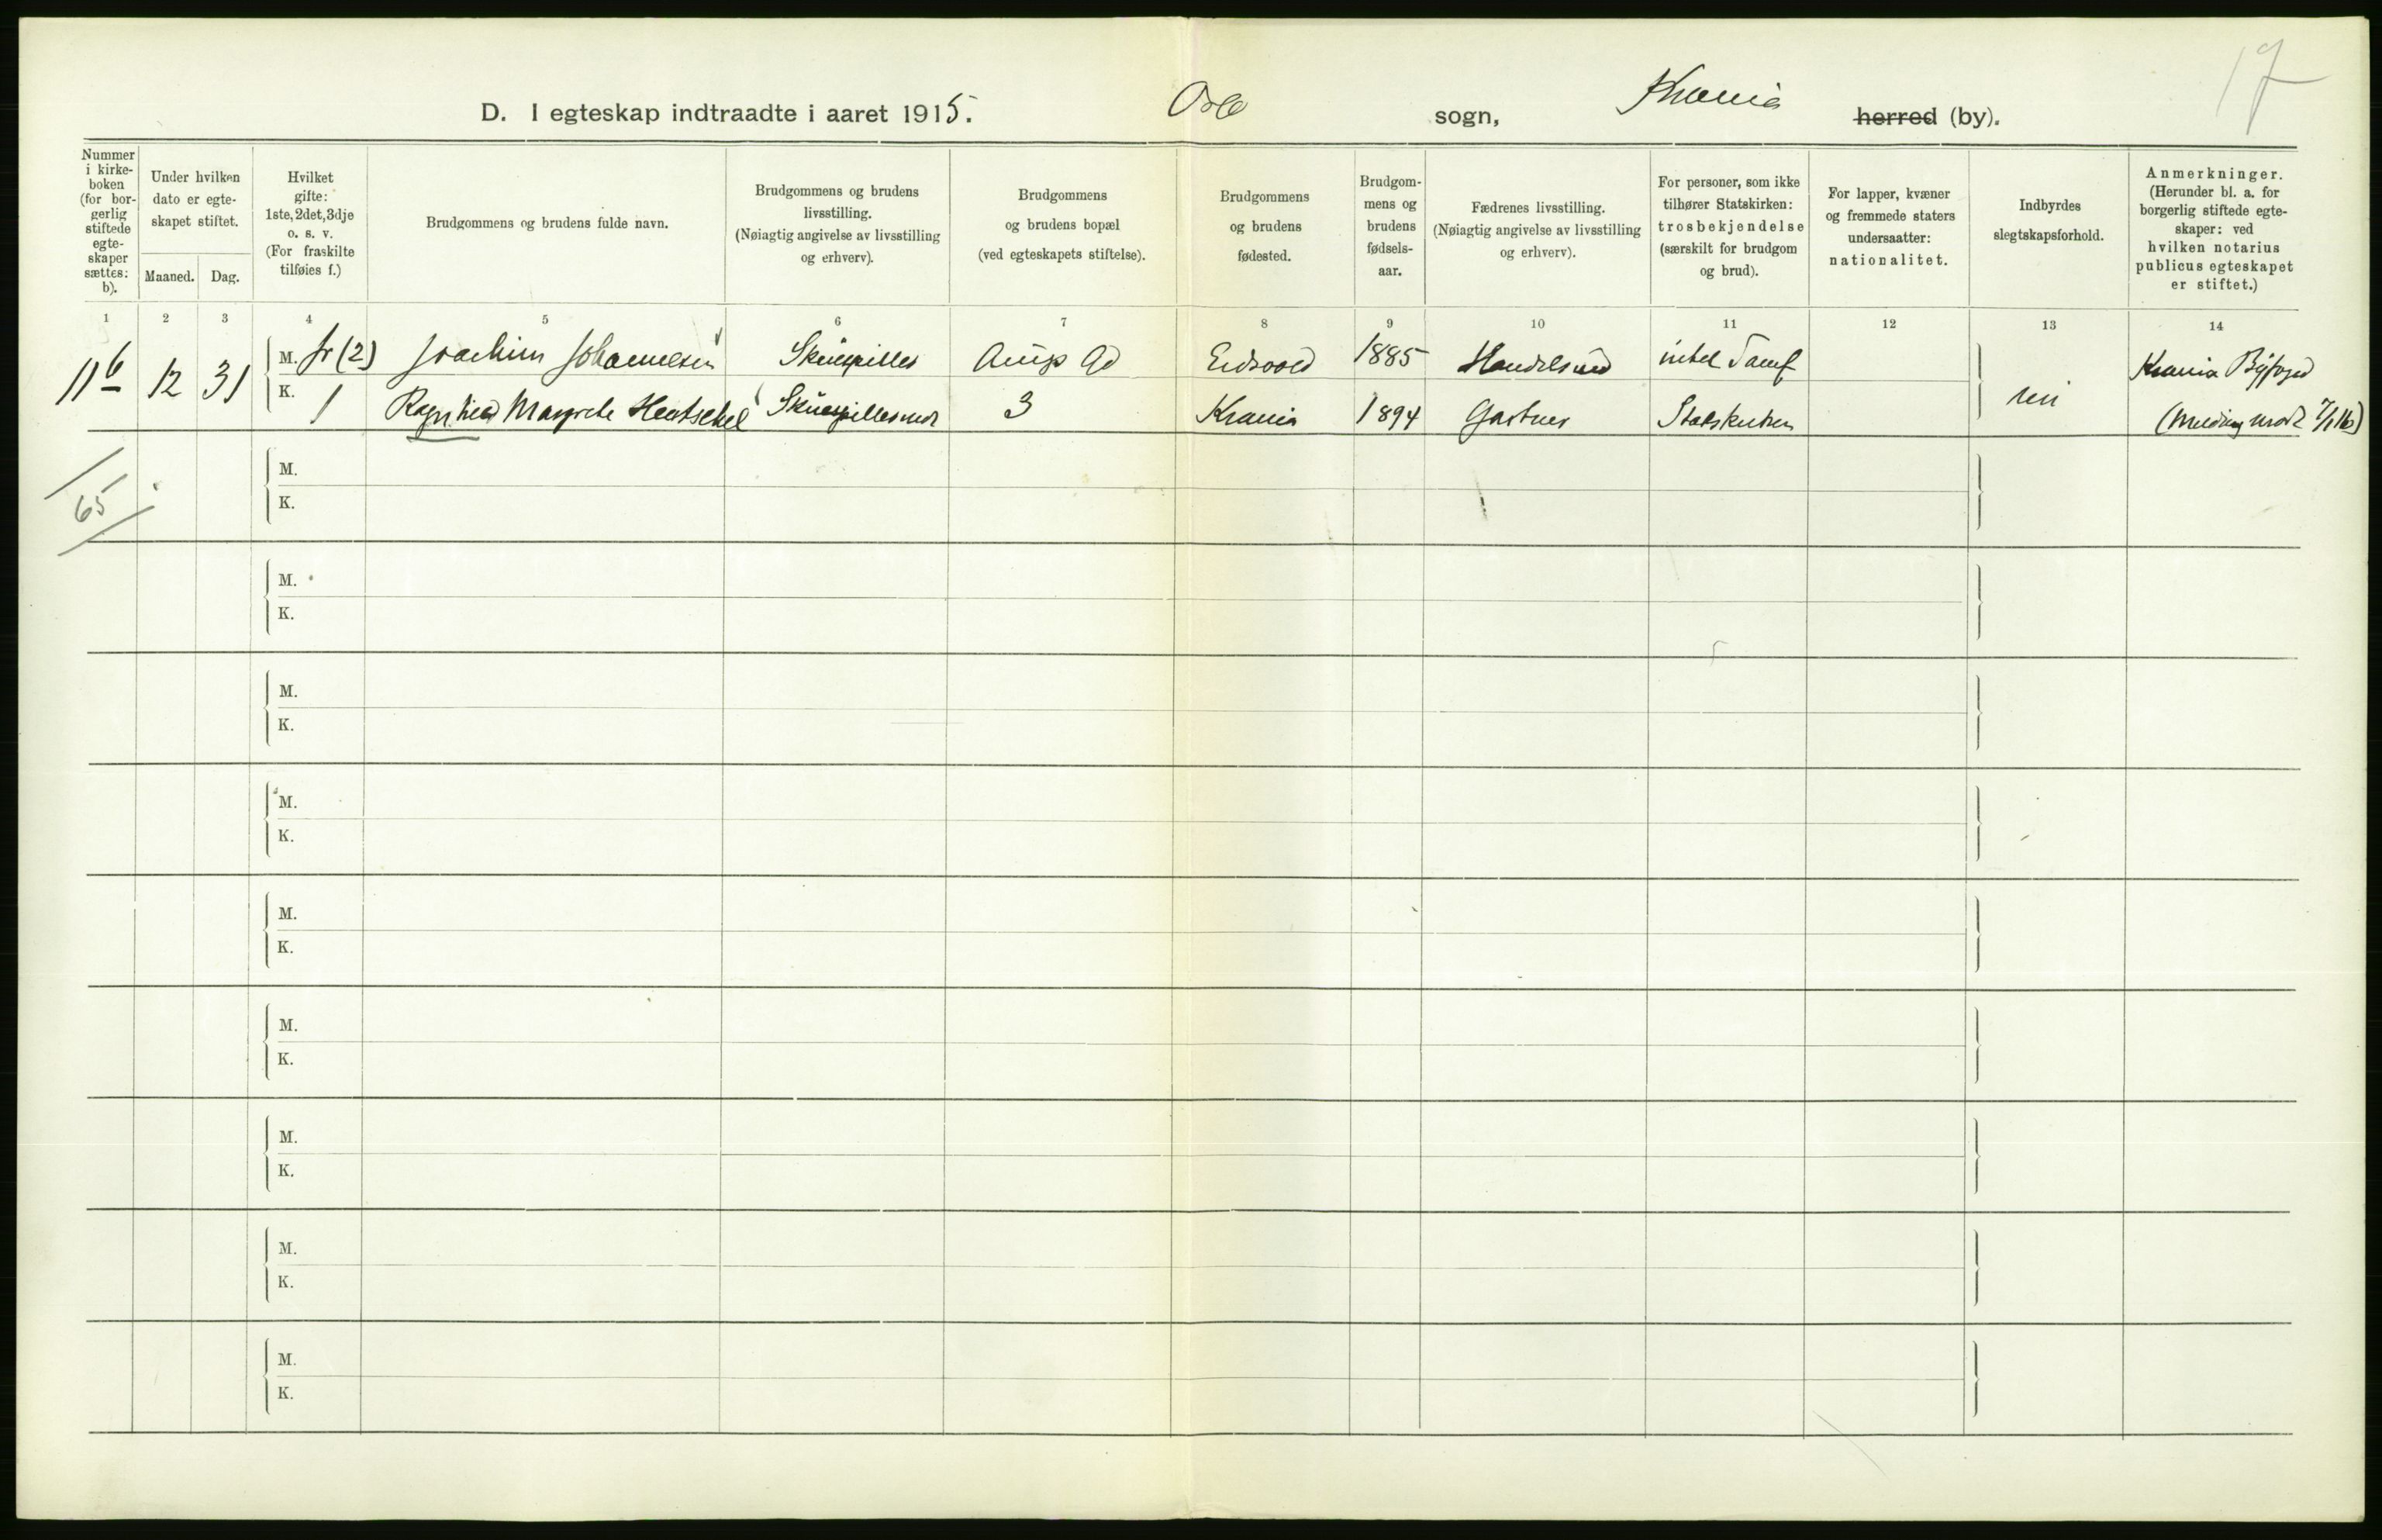 17
D. I egteskap indtraadte i aaret 1915. Oslo sogn, Krania herred (by).
Nummer i kirke-boken (for bor-gerlig stiftede egte-skaper sættes: b).
Under hvilken dato er egte-skapet stiftet.
Maaned. Dag.
Hvilket gifte: 1ste, 2det, 3dje o. s. v. (For fraskilte tilføies f.)
Brudgommens og brudens fulde navn.
Brudgommens og brudens livsstilling. (Nøiagtig angivelse av livsstilling og erhverv).
Brudgommens og brudens bopæl (ved egteskapets stiftelse).
Brudgommens og brudens fødested.
Brudgom-mens og brudens fødsels-aar.
Fædrenes livsstilling. (Nøiagtig angivelse av livsstilling og erhverv).
For personer, som ikke tilhører Statskirken: trosbekjendelse (særskilt for brudgom og brud).
For lapper, kvæner og fremmede staters undersaatter: nationalitet.
Indbyrdes slegtskapsforhold.
Anmerkninger. (Herunder bl. a. for borgerlig stiftede egte-skaper: ved hvilken notarius publicus egteskapet er stiftet.)
1 2 3 4 5 6 7 8 9 10 11 12 13 14
11 b 12 31 M. fr (2) Joachim Johannesen Skuespiller Eidsvold 1885 Handelsmd intet Samf Krania Byfoged
K. 1 Ragnhild Margrete Hentschel Skuespillerinde 3 Krania 1894 Gartner Statskirken nei (Melding mod 7/1 16)
65
M.
K.
M.
K.
M.
K.
M.
K.
M.
K.
M.
K.
M.
K.
M.
K.
M.
K.